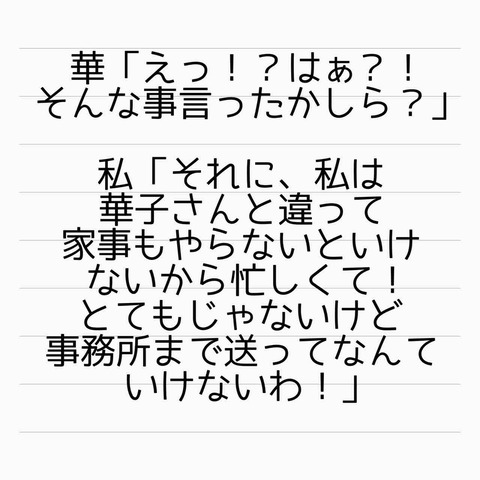 華「えっ！？はぁ？！
そんな事言ったかしら？」
私「それに、私は
華子さんと違って
家事もやらないといけ
ないから忙しくて！
とてもじゃないけど
事務所まで送ってなんて
いけないわ！」